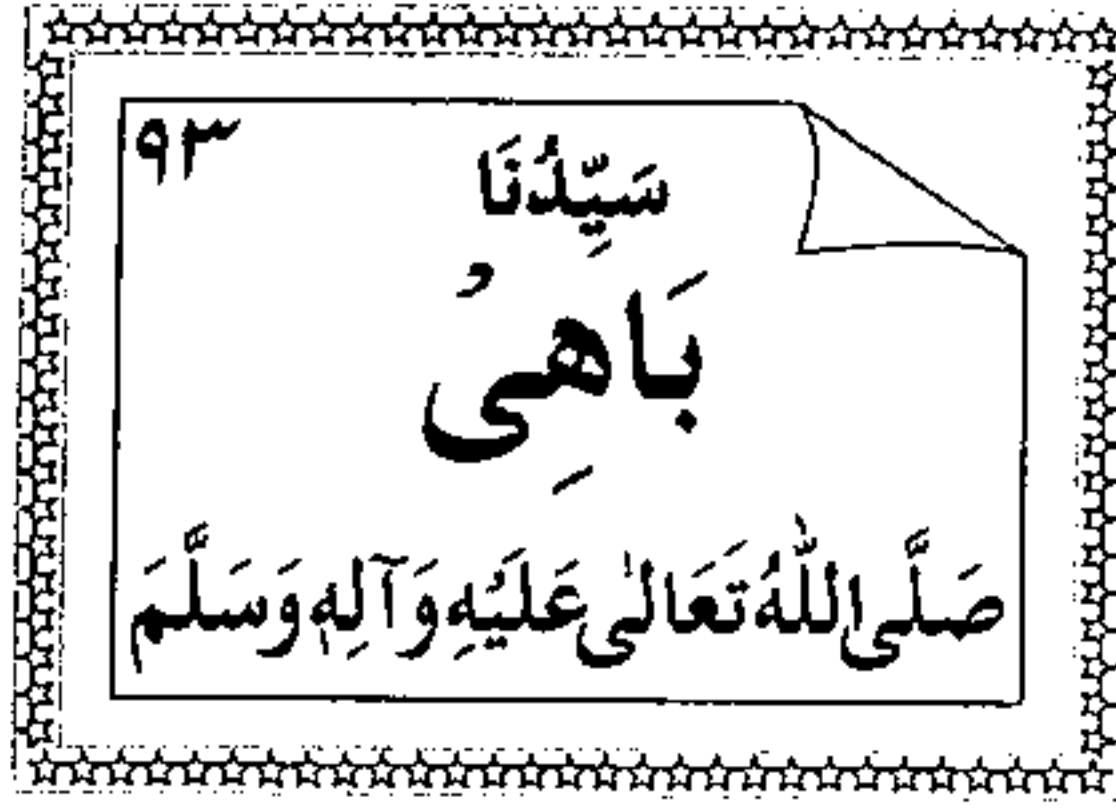 ۹۳
سَيِّدُنَا
بَاهِىْ
صَلَّى اللّٰهُ تَعَالٰى عَلَيْهِ وَآلِهٖ وَسَلَّمَ